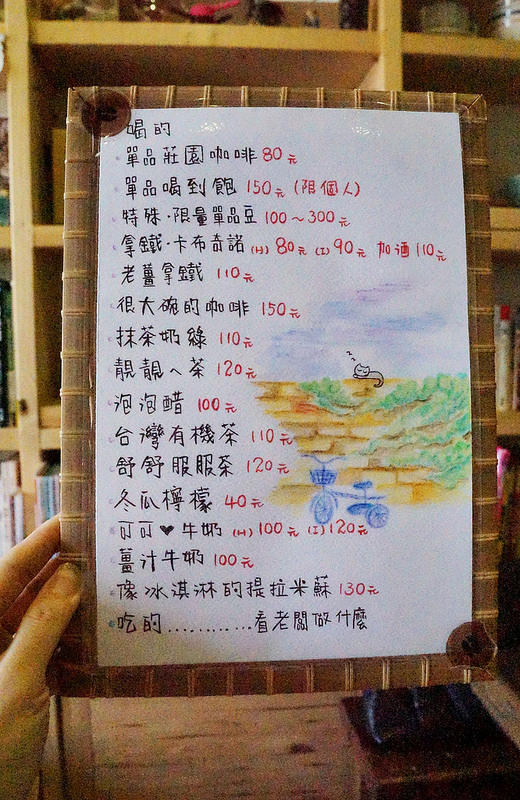 喝的
單品莊園咖啡 80元
單品喝到飽 150元 (限個人)
特殊·限量單品豆 100～300元
拿鐵·卡布奇諾 (H) 80元 (I) 90元 加酒110元
老薑拿鐵 110元
很大碗的咖啡 150元
抹茶奶綠 110元
靚靚ㄟ茶 120元
泡泡醋 100元
台灣有機茶 110元
舒舒服服茶 120元
冬瓜檸檬 40元
可可♥牛奶 (H) 100元 (I) 120元
薑汁牛奶 100元
像冰淇淋的提拉米蘇 130元
吃的...........看老闆做什麼
zzz